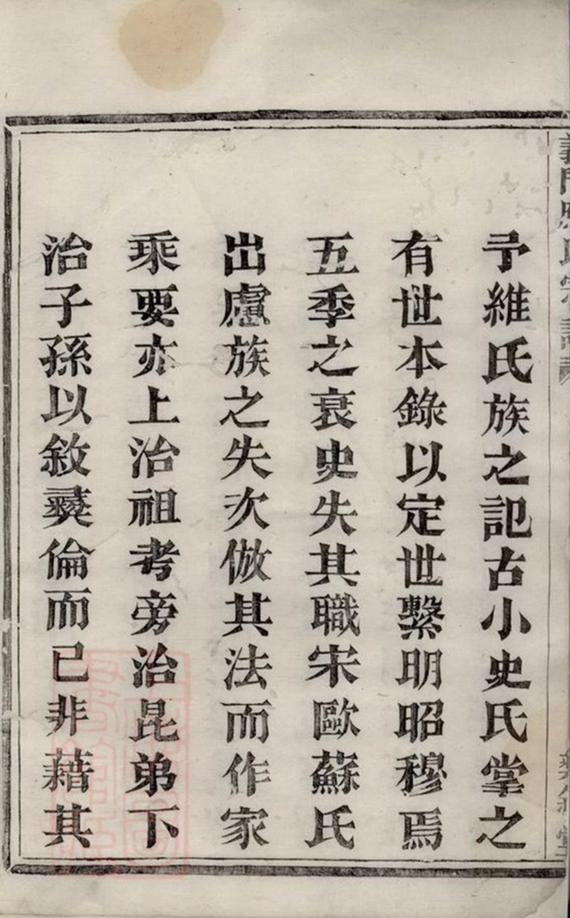 予維氏族之記古小史氏掌之
有世本錄以定世繫明昭穆焉
五季之衰史失其職宋歐蘇氏
出慮族之失次倣其法而作家
乘要亦上治祖考旁治昆弟下
治子孫以敘彞倫而已非藉其